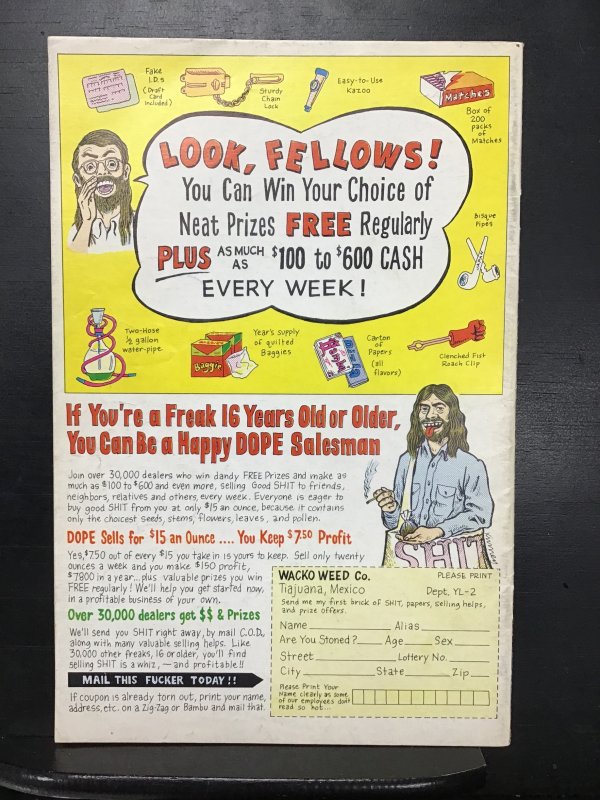 Fake
I.D.s
(Draft
Card
Included)
Sturdy
Chain
Lock
Easy-to-Use
Kazoo
Matches
Box of
200
packs
of
Matches
LOOK, FELLOWS!
You Can Win Your Choice of
Neat Prizes FREE Regularly
PLUS AS MUCH AS $100 to $600 CASH
EVERY WEEK!
Bisque
Pipes
Two-Hose
½ gallon
water-pipe
Baggie
Year's supply
of quilted
Baggies
Carton
of
Papers
(all
flavors)
Clenched Fist
Roach Clip
If You're a Freak 16 Years Old or Older,
You Can Be a Happy DOPE Salesman
Join over 30,000 dealers who win dandy FREE Prizes and make as
much as $100 to $600 and even more, selling Good SHIT to friends,
neighbors, relatives and others, every week. Everyone is eager to
buy good SHIT from you at only $15 an ounce, because it contains
only the choicest seeds, stems, flowers, leaves, and pollen.
DOPE Sells for $15 an Ounce .... You Keep $7.50 Profit
Yes, $7.50 out of every $15 you take in is yours to keep. Sell only twenty
ounces a week and you make $150 profit,
$7800 in a year...plus valuable prizes you win
FREE regularly! We'll help you get started now,
in a profitable business of your own.
Over 30,000 dealers got $$ & Prizes
We'll send you SHIT right away, by mail C.O.D.,
along with many valuable selling helps. Like
30,000 other freaks, 16 or older, you'll find
selling SHIT is a whiz, — and profitable!!
MAIL THIS FUCKER TODAY!!
If coupon is already torn out, print your name,
address, etc. on a Zig-Zag or Bambu and mail that.
SHIT
WACKO WEED Co. PLEASE PRINT
Tiajuana, Mexico Dept. YL-2
Send me my first brick of SHIT, papers, selling helps,
and prize offers.
Name Alias
Are You Stoned? Age Sex
Street Lottery No.
City State Zip
Please Print Your
Name clearly as some
of our employees don't
read so hot...